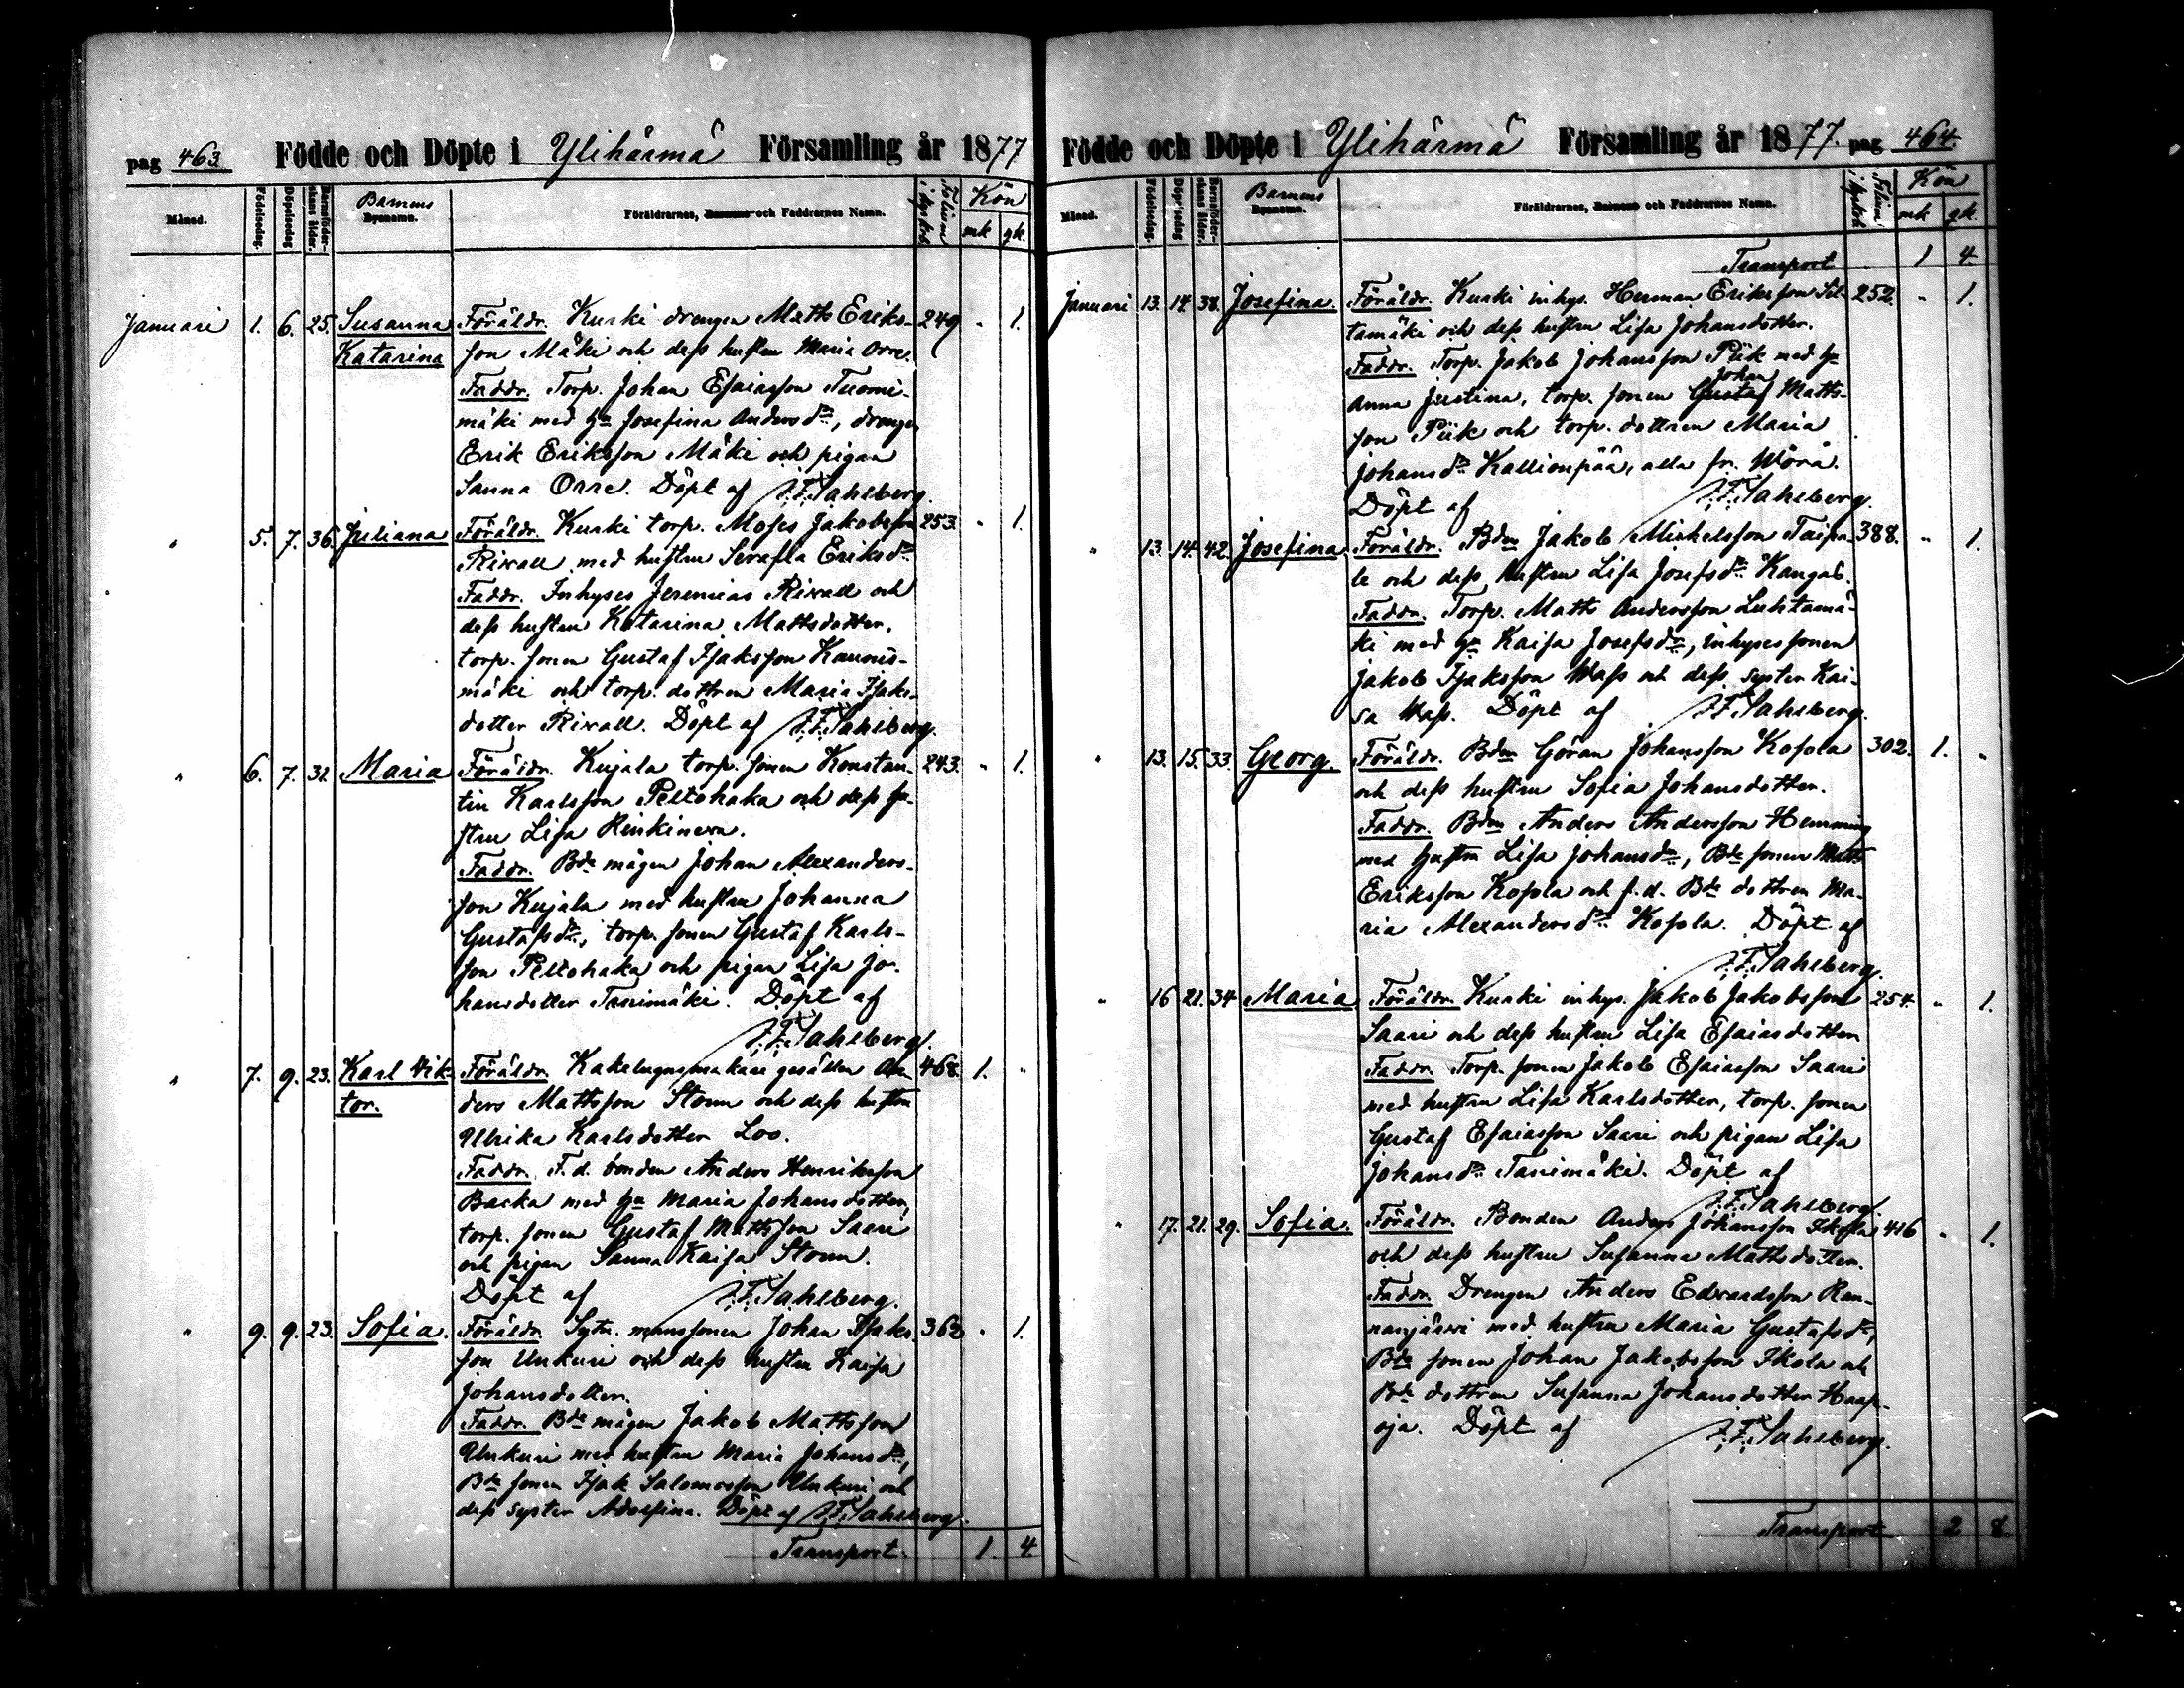 pag 463. Födde och Döpte i Ylihärmä Församling år 1877
Månad. Födelsedag. Döpelsedag Barnaföderskans ålder. Barnens Bynamn. Föräldrarnes, Barnens och Faddrarnes Namn. Kön
mk gk.
Januari 1. 6. 25. Susanna Föräldr. Kurki drengen Matts Eriks- 249 " 1.
Katarina son Mäki och dess hustru Maria Orre.
Faddr. Torp. Johan Esaiasson Tuomi-
mäki med hu Josefina Andersdr, drengen
Erik Eriksson Mäki och pigan
Sanna Orre. Döpt af J.F. Sahlberg.
" 5. 7. 36. Juliana Föräldr. Kurki torp. Moses Jakobsson 253. " 1.
Riwall med hustru Serafia Eriksdr
Faddr. Inhyses Jeremias Riwall och
dess hustru Katarina Mattsdotter,
torp. sonen Gustaf Isaksson Kaunis-
mäki och torp. dottren Maria Isaks-
dotter Riwall. Döpt af J.F. Sahlberg.
" 6. 7. 31. Maria Föräldr. Kujala torp. sonen Konstan- 243. " 1.
tin Karlsson Peltohaka och dess hu-
stru Lisa Rinkinewa.
Faddr. Bde mågen Johan Alexanders-
son Kujala med hustru Johanna
Gustafsdr, torp. sonen Gustaf Karls-
son Peltohaka och pigan Lisa Jo-
hansdotter Tanimäki. Döpt af
J.F. Sahlberg.
" 7. 9. 23. Karl Vik- Föräldr. Kakelugnsmakare gesällen An- 468. 1. "
tor. ders Mattsson Storm och dess hustru
Ulrika Karlsdotter Loo.
Faddr. F. d. bonden Anders Henriksson
Backa med hu Maria Johansdotter,
torp. sonen Gustaf Mattsson Saari
och pigan Sanna Kaisa Storm.
Döpt af J.F. Sahlberg.
" 9. 9. 23. Sofia. Föräldr. Sytn. mans sonen Johan Isaks- 362 " 1.
son Unkuri och dess hustru Kaisa
Johansdotter.
Faddr. Bde mågen Jakob Mattsson
Unkuri med hustru Maria Johansdr,
Bde sonen Isak Salomosson Unkuri och
dess syster Adolfina. Döpt af J.F. Sahlberg.
Transport 1. 4
Födde och Döpte i Ylihärmä Församling år 1877. pag 464.
Månad. Födelsedag. Döpelsedag Barnaföderskans ålder. Barnens Bynamn. Föräldrarnes, Barnens och Faddrarnes Namn. Kön
mk gk.
Transport 1 4
Januari 13. 14. 38. Josefina. Föräldr. Kurki inhys. Herman Eriksson Sil- 252. " 1.
tamäki och dess hustru Lisa Johansdotter.
Faddr. Torp. Jakob Johansson Piik med hu
Johan
Anna Justina, torp. sonen Gustaf Matts-
son Piik och torp. dottren Maria
Johansdr Kallionpää, alla fr. Wörå.
Döpt af J.F. Sahlberg.
" 13. 14. 42. Josefina Föräldr. Bdn Jakob Mickelsson Taipa- 388. " 1.
le och dess hustru Lisa Josefsdr Kangas.
Faddr. Torp. Matts Andersson Luhtamä-
ki med hu Kaisa Josefsdr, inhyses sonen
Jakob Isaksson Wass och dess syster Kai-
sa Wass. Döpt af J.F. Sahlberg.
" 13. 15. 33. Georg. Föräldr. Bdn Göran Johansson Kosola 302. 1. "
och dess hustru Sofia Johansdotter.
Faddr. Bdn Anders Andersson Hemming
med hustru Lisa Johansdr, Bde sonen Matts
Eriksson Kosola och f. d. Bde dottren Ma-
ria Alexandersdr Kosola. Döpt af
J.F. Sahlberg.
" 16 21. 34 Maria Föräldr. Kurki inhys. Jakob Jakobsson 254. " 1.
Saari och dess hustru Lisa Esaiasdotter
Faddr. Torp. sonen Jakob Esaiasson Saari
med hustru Lisa Karlsdotter, torp. sonen
Gustaf Esaiasson Saari och pigan Lisa
Johansdr Tanimäki. Döpt af
J.F. Sahlberg.
" 17. 21. 29. Sofia. Föräldr. Bonden Anders Johansson Ikola 416 " 1.
och dess hustru Susanna Mattsdotter.
Faddr. Drengen Anders Edvardsson Ran-
nanjärvi med hustru Maria Gustafsdr,
Bde sonen Johan Jakobsson Ikola och
Bde dottren Susanna Johansdotter Haap-
oja. Döpt af J.F. Sahlberg.
Transport 2 8